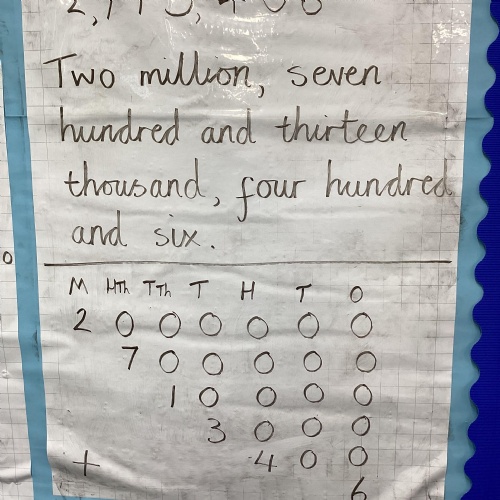 2,713,406
Two million, seven
hundred and thirteen
thousand, four hundred
and six.
M HTh TTh T H T O
2 0 0 0 0 0 0
7 0 0 0 0 0
1 0 0 0 0
3 0 0 0
+ 4 0 0
6